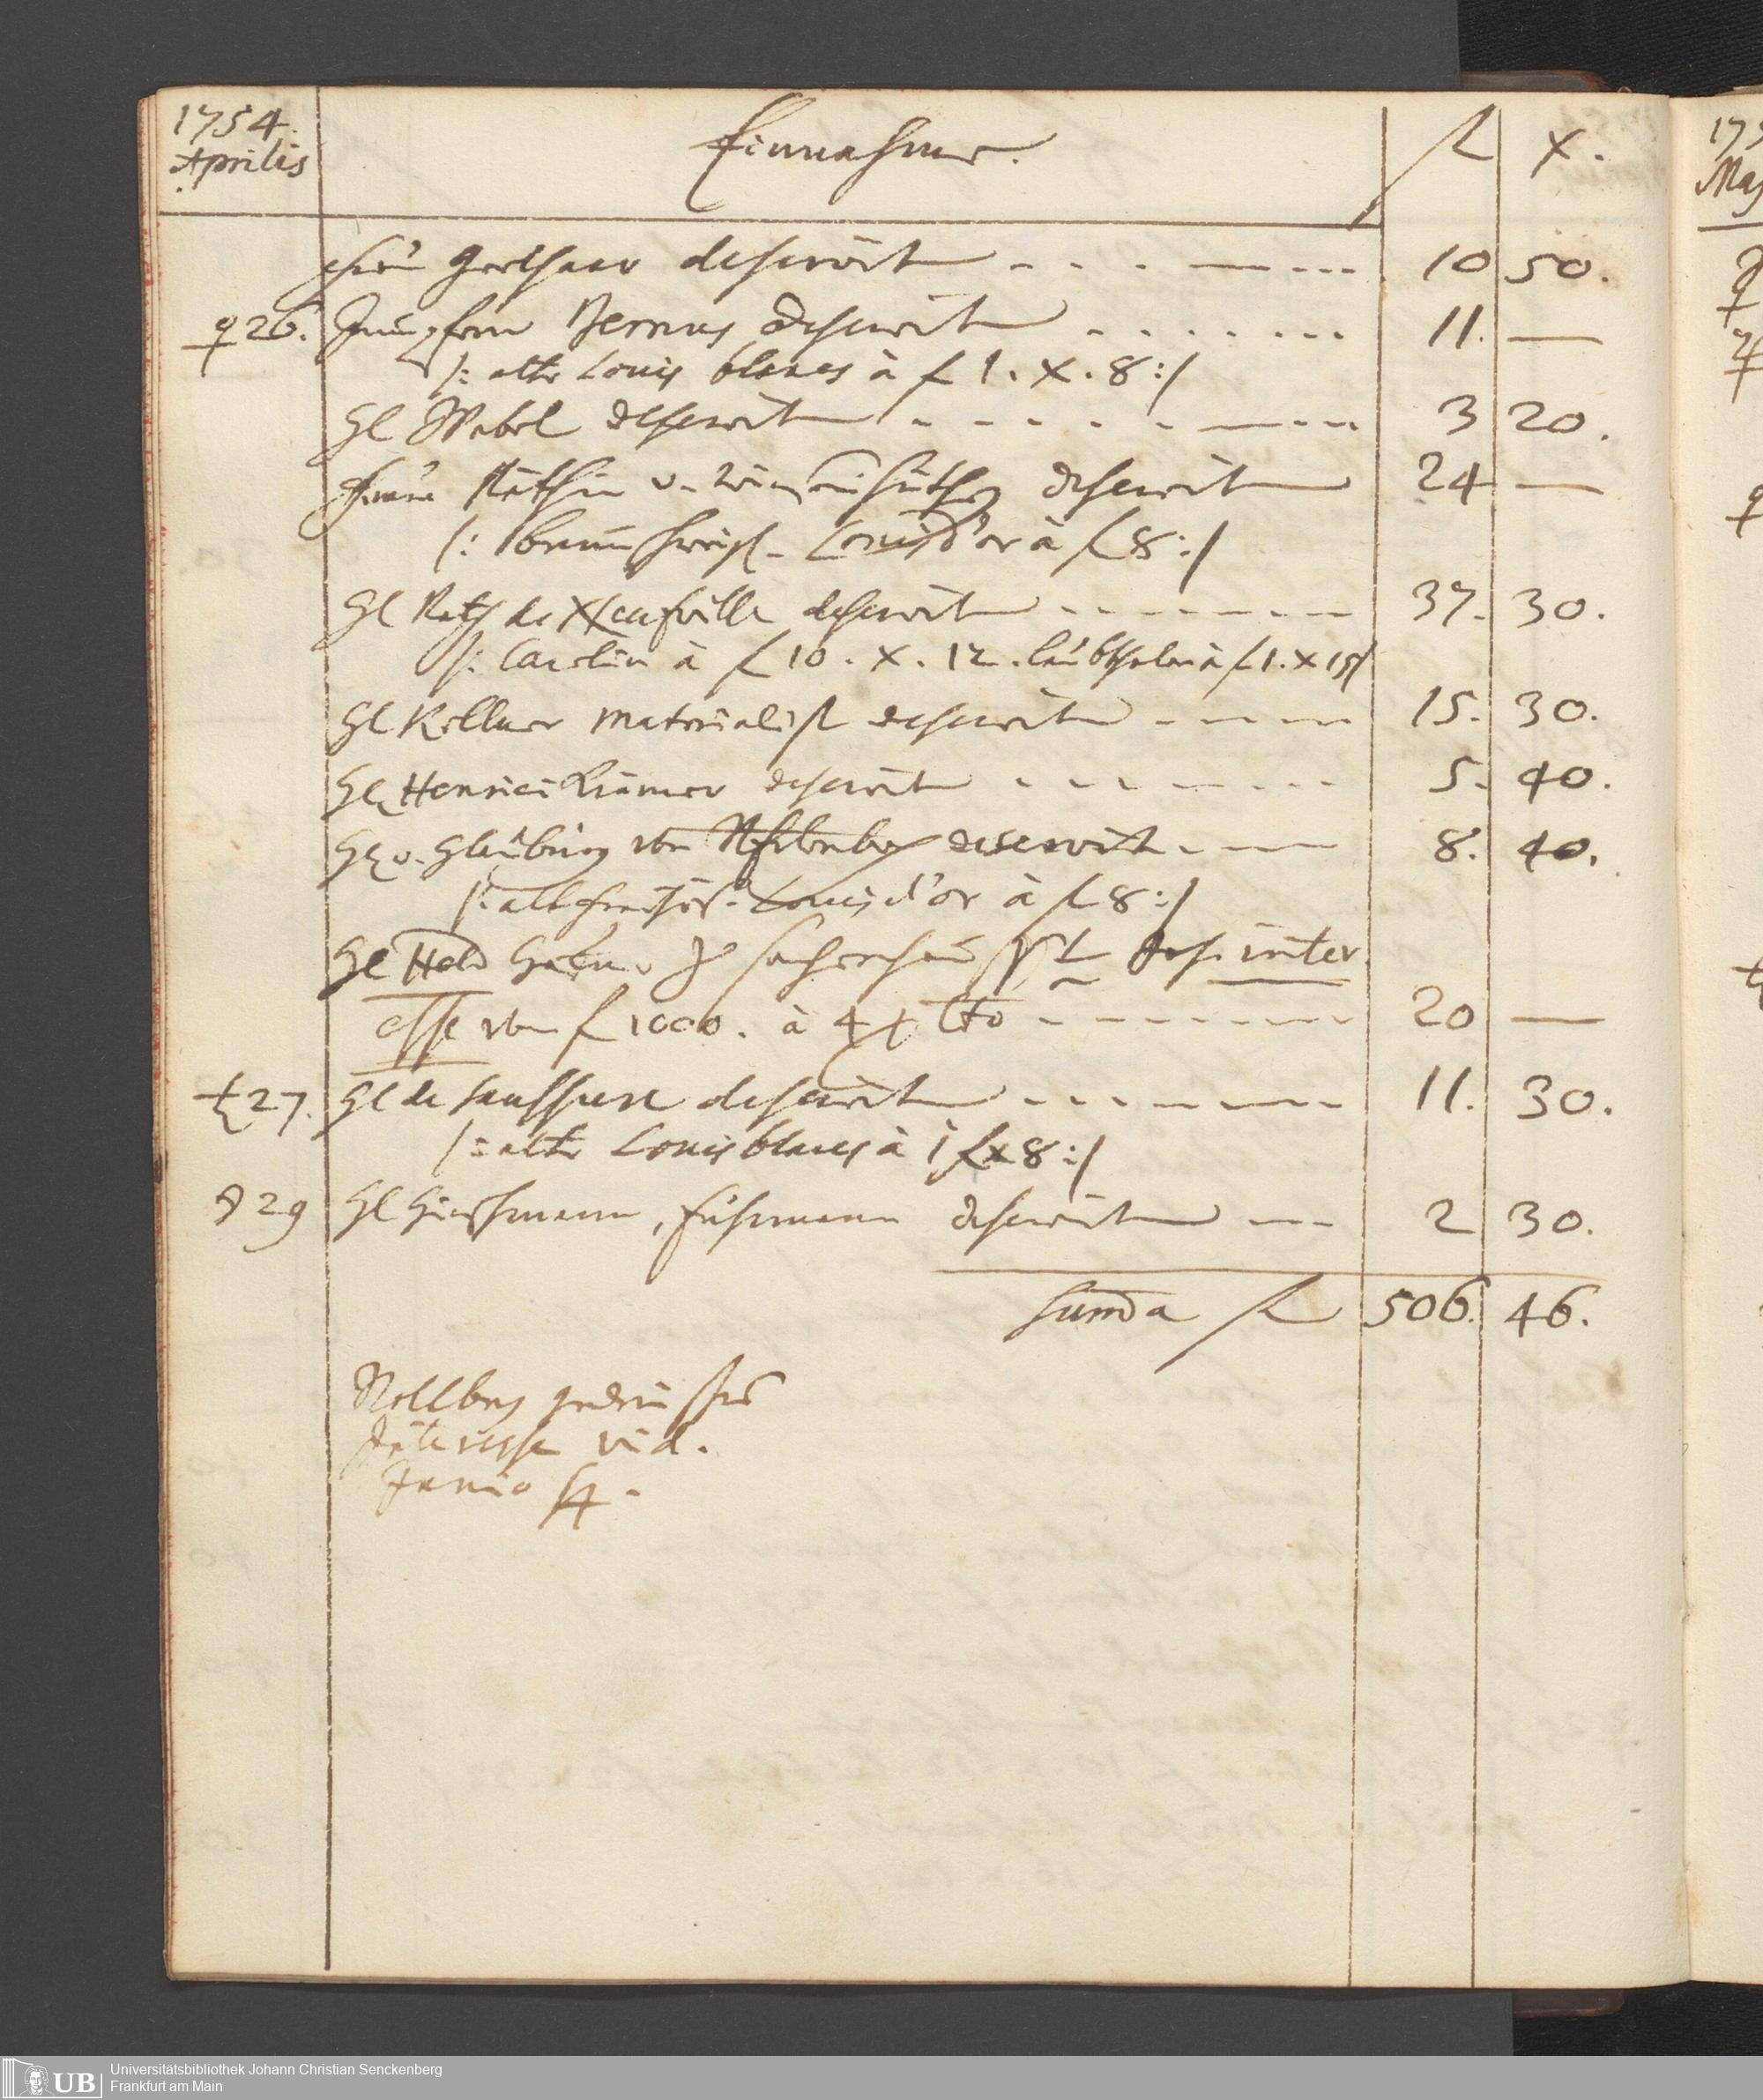 1754.
Aprilis
Einnahme.
fl x.
Frau deservit - - - 10 50.
♀ 26. Jungfrau Bernus deservit - - - 11. —
/: alte Louis blancs à f 1. x. 8 :/
Hl Wabel deservit - - - 3 20.
Frau Räthin v. deservit 24 —
/: braunschweig. Louisd'or à f 8 :/
Hl Rath de Neufville deservit - - - 37. 30.
/: Carolin à f 10. x. 12. laubthaler à f 1. x 15/
Hl Kellner Materialist deservit - - - 15. 30.
Hl Henrici Krämer deservit - - - 5. 40.
Hl v. Glauburg deservit - - - 8. 40.
/: alte Louisd'or à f 8 :/
Hl Held inter
esse von f 1000. à 4 p Cto - - - 20 —
♄ 27. Hl de Saussure deservit - - - 11. 30.
/: alte Louis blancs à 1 f x 8 :/
29 Hl Hirschmann, Fuhrmann deservit - - - 2 30.
Suma fl 506. 46.
Interesse vid.
Junio
17
May
UB
Universitätsbibliothek Johann Christian Senckenberg
Frankfurt am Main